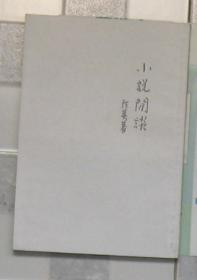 小説閒談
阿英著